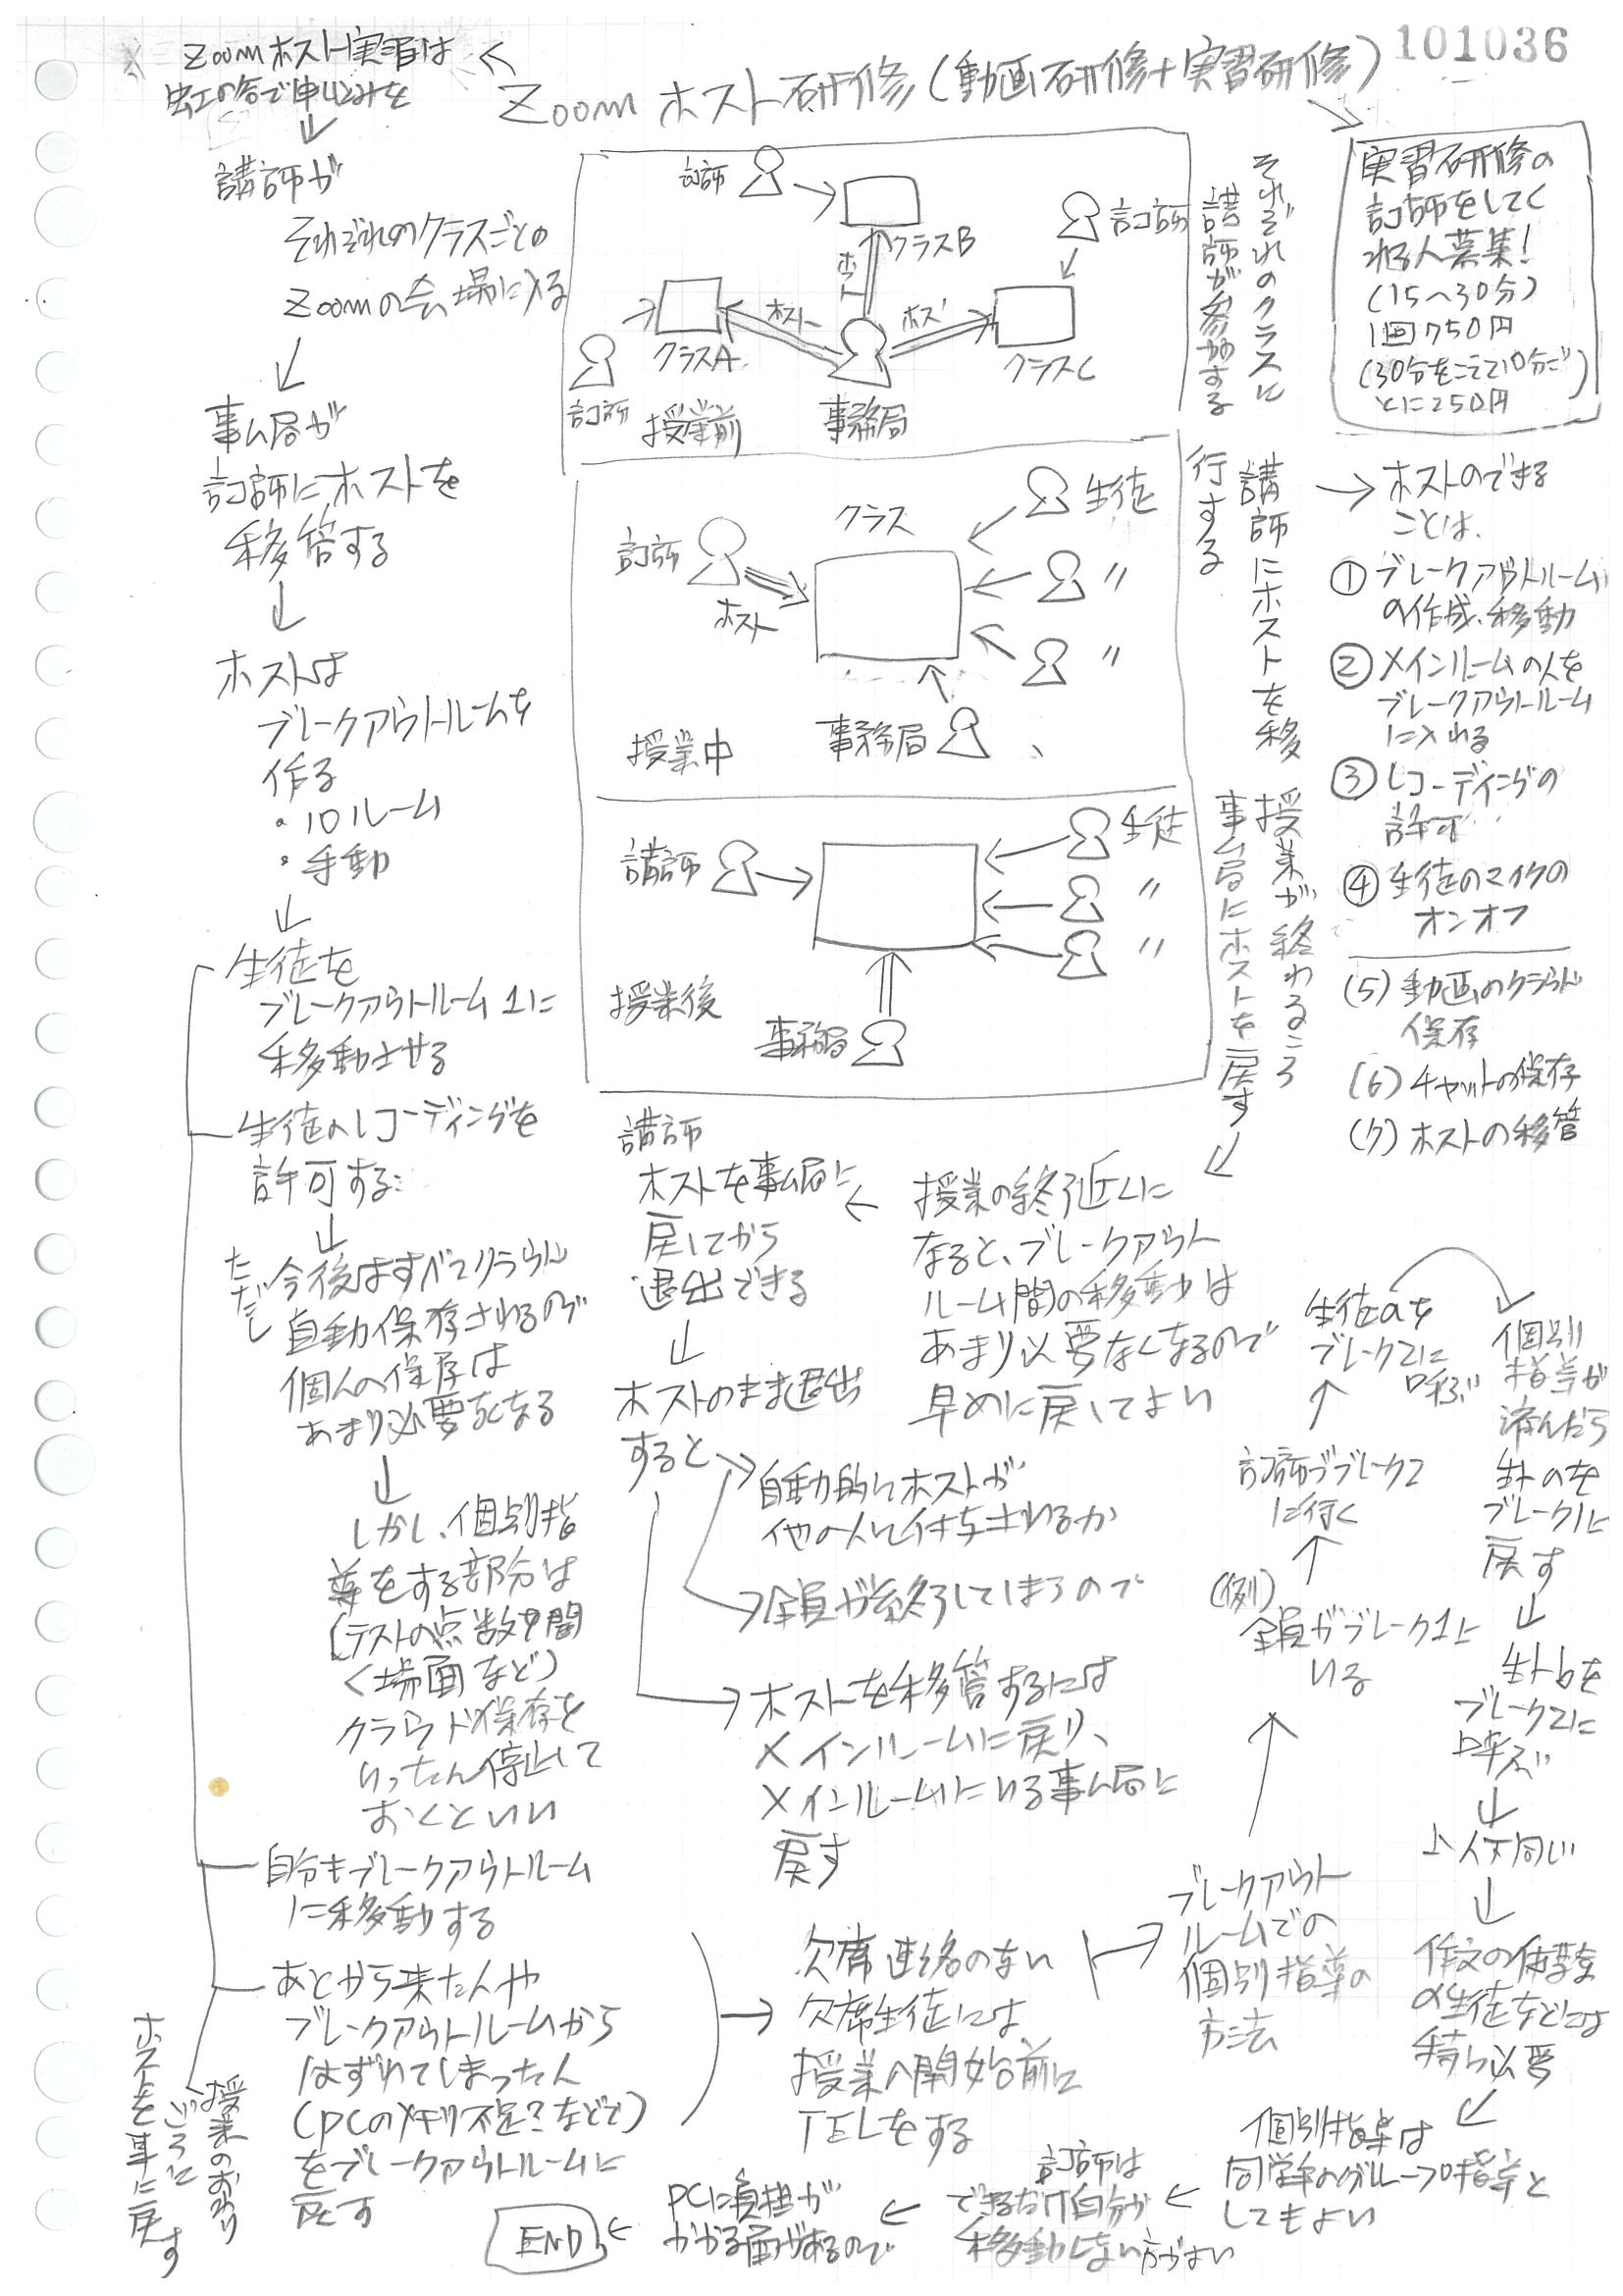 101036
Zoomホスト研修(動画研修+実習研修)
Zoomホスト実習は
虫工の会で申し込みを
講師が
それぞれのクラスごとの
Zoomの会場に入る
事ム局が
講師にホストを
移管する
ホストは
ブレークアウトルームを
作る
・10ルーム
・手動
生徒を
ブレークアウトルーム1に
移動させる
生徒のレコーディングを
許可する
ただし
今後はすべてクラウド
自動保存されるので
個人の保存は
あまり必要なくなる
しかし、個別指
導をする部分は
(テストの点数を聞
く場面など)
クラウド保存を
いったん停止して
おくといい
自分もブレークアウトルーム
に移動する
あとから来た人や
ブレークアウトルームから
はずれてしまった人
(PCのメモリ不足?などで)
をブレークアウトルームに
戻す
授業のおわり
ごろに
ホストを事に戻す
講師
クラスB
講師
ホスト
クラスA
ホスト
ホスト
クラスC
講師
授業前
事務局
それぞれのクラスに
講師が参加する
クラス
生徒
講師
〃
ホスト
〃
授業中
事務局
講師にホストを移
行する
生徒
講師
〃
〃
授業後
事務局
授業が終わるころ
事ム局にホストを戻す
実習研修の
講師をしてく
れる人募集!
(15〜30分)
1回750円
(30分をこえて10分ご
とに250円)
ホストのできる
ことは、
①ブレークアウトルーム
の作成、移動
②メインルームの人を
ブレークアウトルーム
に入れる
③レコーディングの
許可
④生徒のマイクの
オンオフ
(5)動画のクラウド
保存
(6)チャットの保存
(7)ホストの移管
授業の終了近くに
なると、ブレークアウト
ルーム間の移動は
あまり必要なくなるので
早めに戻してよい
講師
ホストを事ム局に
戻してから
退出できる
ホストのまま退出
すると
自動的にホストが
他の人に付与されるか
全員が終了してしまうので
ホストを移管するには
メインルームに戻り、
メインルームにいる事ム局に
戻す
欠席連絡のない
欠席生徒には
授業の開始前に
TELをする
ブレークアウト
ルームでの
個別指導の
方法
(例)
全員がブレーク1に
いる
講師がブレーク2
に行く
生徒aを
ブレーク2に
呼ぶ
個別
指導が
済んだら
生トaを
ブレーク1に
戻す
生トbを
ブレーク2に
呼ぶ
以下同じ
作文の体験
の生徒などには
特に必要
個別指導は
同学年のグループ指導と
してもよい
講師は
できるだけ自分が
移動しない方がよい
PCに負担が
かかる面があるので
END